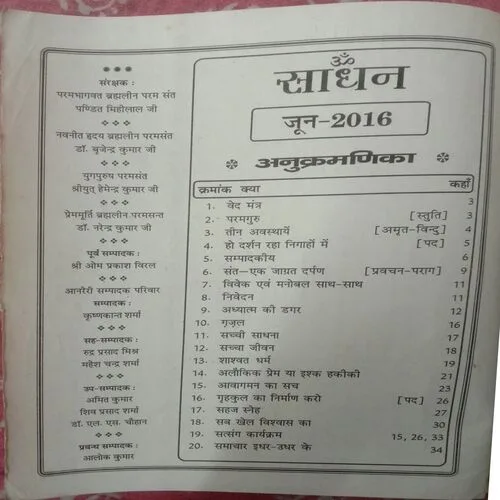 संरक्षक :
परमभागवत ब्रह्मलीन परम संत
पण्डित मिहीलाल जी
नवनीत हृदय ब्रह्मलीन परमसंत
डॉ. बृजेन्द्र कुमार जी
युगपुरुष परमसंत
श्रीयुत् हेमेन्द्र कुमार जी
प्रेममूर्ति ब्रह्मलीन परमसन्त
डॉ. नरेन्द्र कुमार जी
पूर्व सम्पादक :
श्री ओम प्रकाश विरल
आनरेरी सम्पादक परिवार
सम्पादक :
कृष्णकान्त शर्मा
सह-सम्पादक :
रुद्र प्रसाद मिश्र
महेश चन्द्र शर्मा
उप-सम्पादक :
अमित कुमार
शिव प्रसाद शर्मा
डॉ. एल. एस. चौहान
प्रबन्ध सम्पादक :
आलोक कुमार
ॐ
साधन
जून-2016
अनुक्रमणिका
क्रमांक क्या कहाँ
1. वेद मंत्र 3
2. परमगुरु [स्तुति] 3
3. तीन अवस्थायें [अमृत-विन्दु] 4
4. हो दर्शन रहा निगाहों में [पद] 5
5. सम्पादकीय 6
6. संत–एक जाग्रत दर्पण [प्रवचन-पराग] 9
7. विवेक एवं मनोबल साथ-साथ 11
8. निवेदन 11
9. अध्यात्म की डगर 12
10. गृज़ल 16
11. सच्ची साधना 17
12. सच्चा जीवन 18
13. शाश्वत धर्म 19
14. अलौकिक प्रेम या इश्क हकीकी 21
15. आवागमन का सच 23
16. गृहकुल का निर्माण करो [पद] 26
17. सहज स्नेह 27
18. सब खेल विश्वास का 30
19. सत्संग कार्यक्रम 15, 26, 33
20. समाचार इधर-उधर के 34